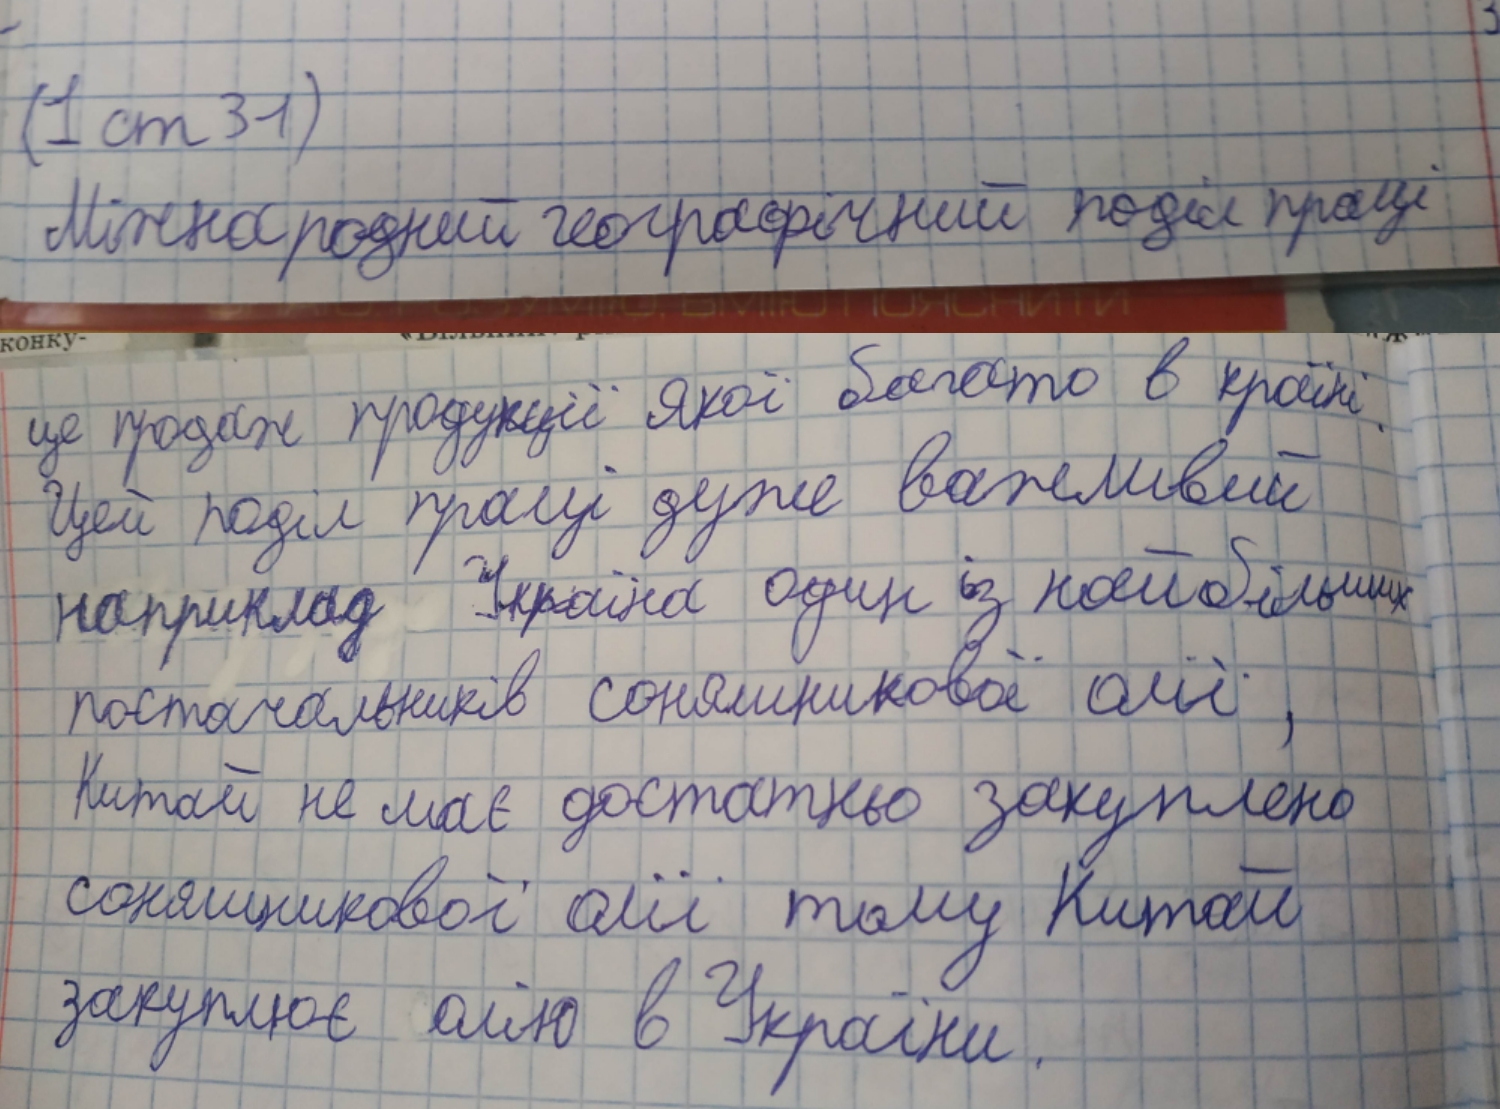 (1 ст 31)
Міжнародний географічний поділ праці
конку-
це продаж продукції якої багато в країні.
Цей поділ праці дуже важливий
наприклад Україна один із найбільших
постачальників соняшникової олії,
Китай не має достатньо закуплено
соняшникової олії тому Китай
закуплює олію в України.